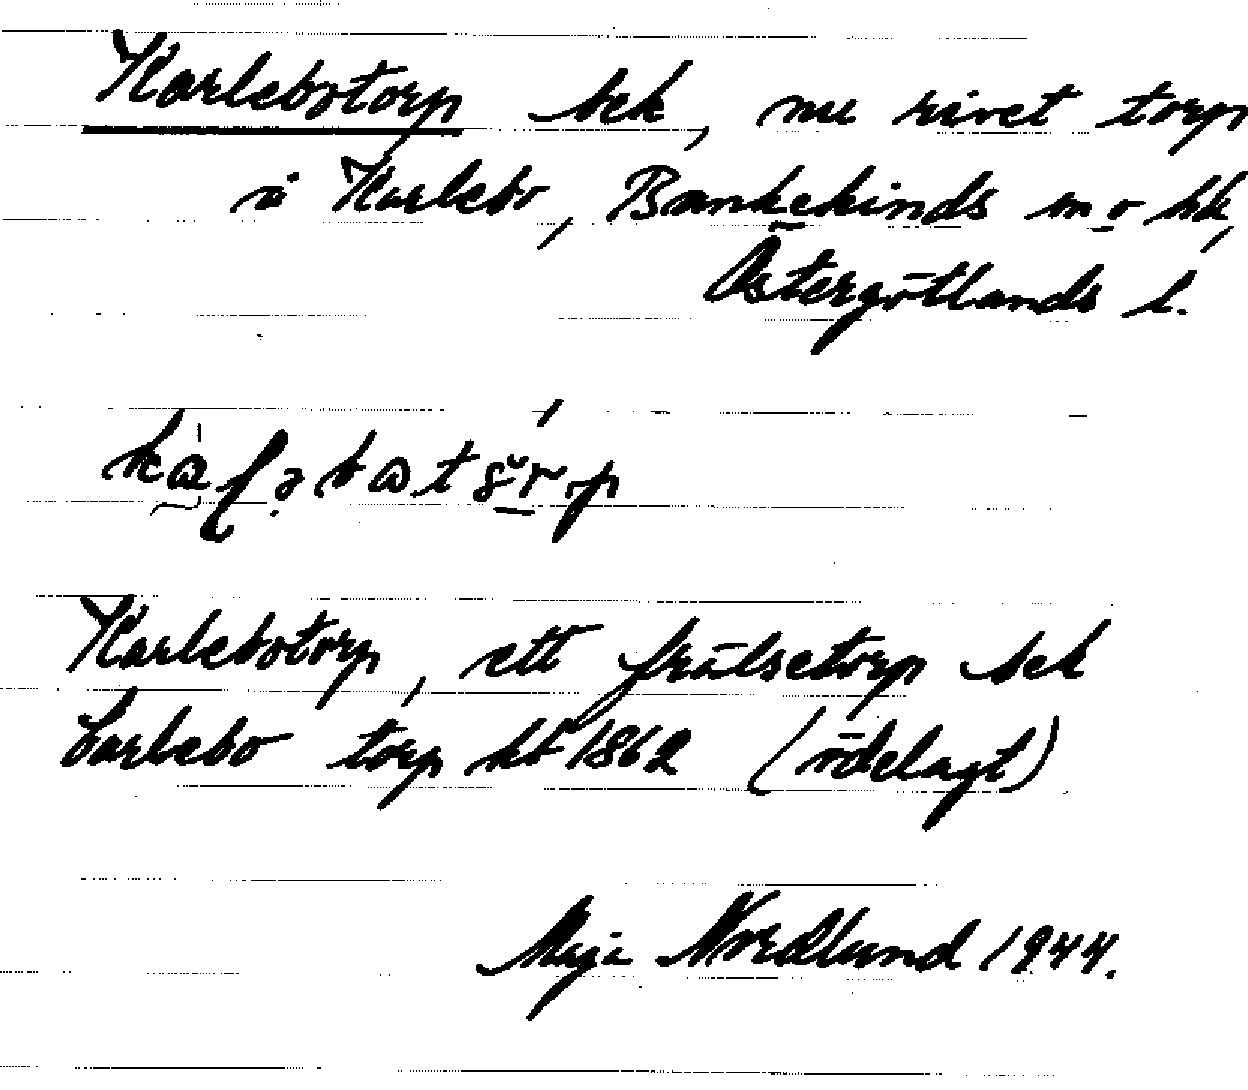 Karlebotorp bek, nu rivet torp
i Karlebo, Bankekinds sn o hd,
Östergötlands l.
Karlebotorp, ett frälsetorp bek
Carlebo torp kb 1862 (ödelagt)
Maja Nordlund 1944.